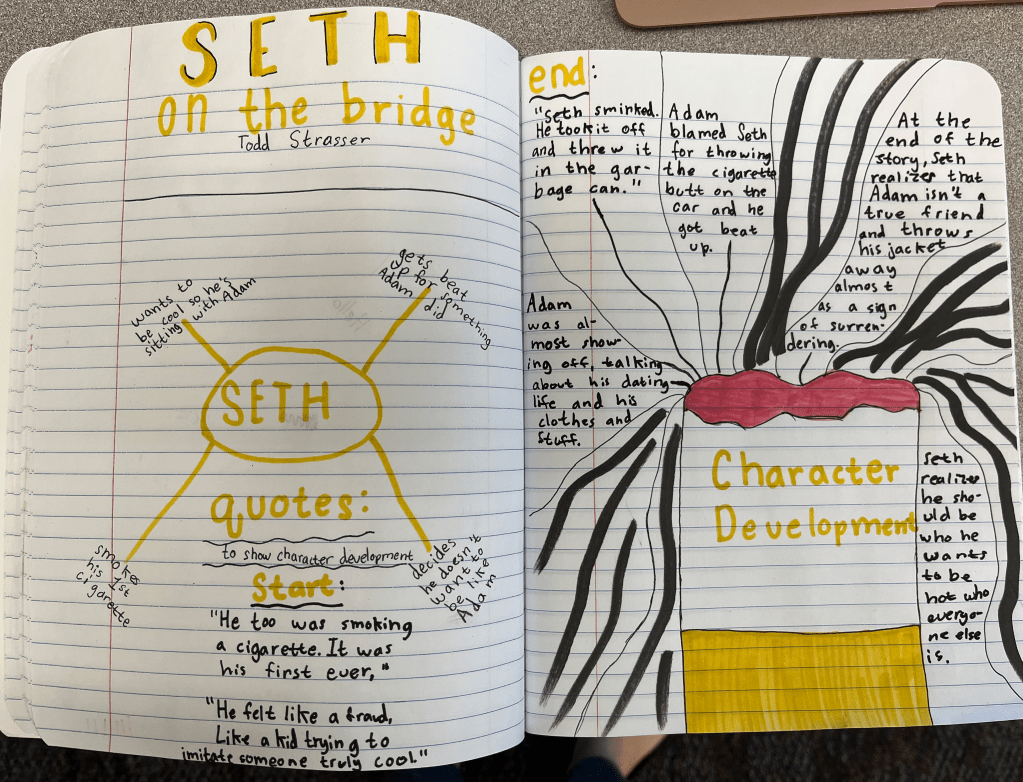 SETH
on the bridge
Todd Strasser
wants to
be cool so he's
sitting with Adam
gets beat
up for something
Adam did
SETH
smokes
his 1st
cigarette
decides
he doesn't
want to
be like
Adam
quotes:
to show character development
Start:
"He too was smoking
a cigarette. It was
his first ever,"
"He felt like a fraud,
Like a kid trying to
imitate someone truly cool."
end:
"Seth smirked.
He took it off
and threw it
in the gar-
bage can."
Adam
blamed Seth
for throwing
the cigarette
butt on the
car and he
got beat
up.
At the
end of the
story, Seth
realizes that
Adam isn't a
true friend
and throws
his jacket
away
almost
as a sign
of surren-
dering.
Adam
was al-
most show-
ing off, talking
about his dating
life and his
clothes and
stuff.
Character
Development
Seth
realizes
he sho-
uld be
who he
wants
to be
not who
everyo-
ne else
is.